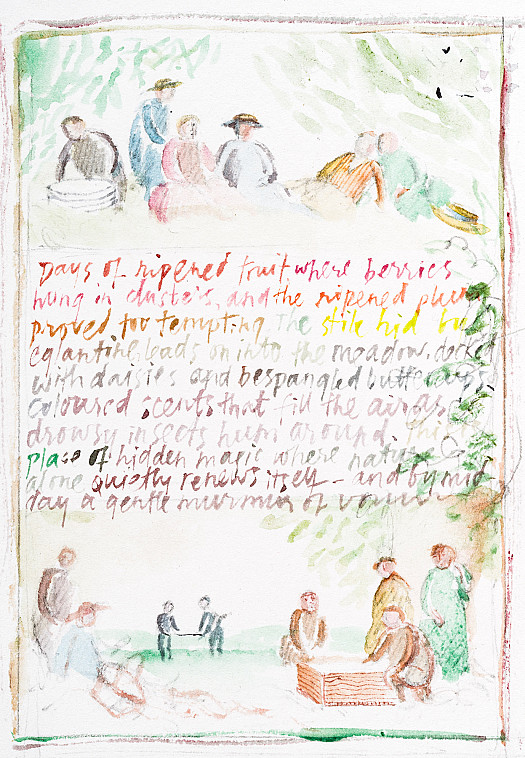 Days of ripened fruit where berries
hung in clusters, and the ripened plum
proved too tempting. The stile hid by
eglantine, leads on into the meadow, decked
with daisies and bespangled buttercups
coloured scents that fill the air as
drowsy insects hum around. This
place of hidden magic where nature
alone quietly renews itself - and by mid
day a gentle murmur of